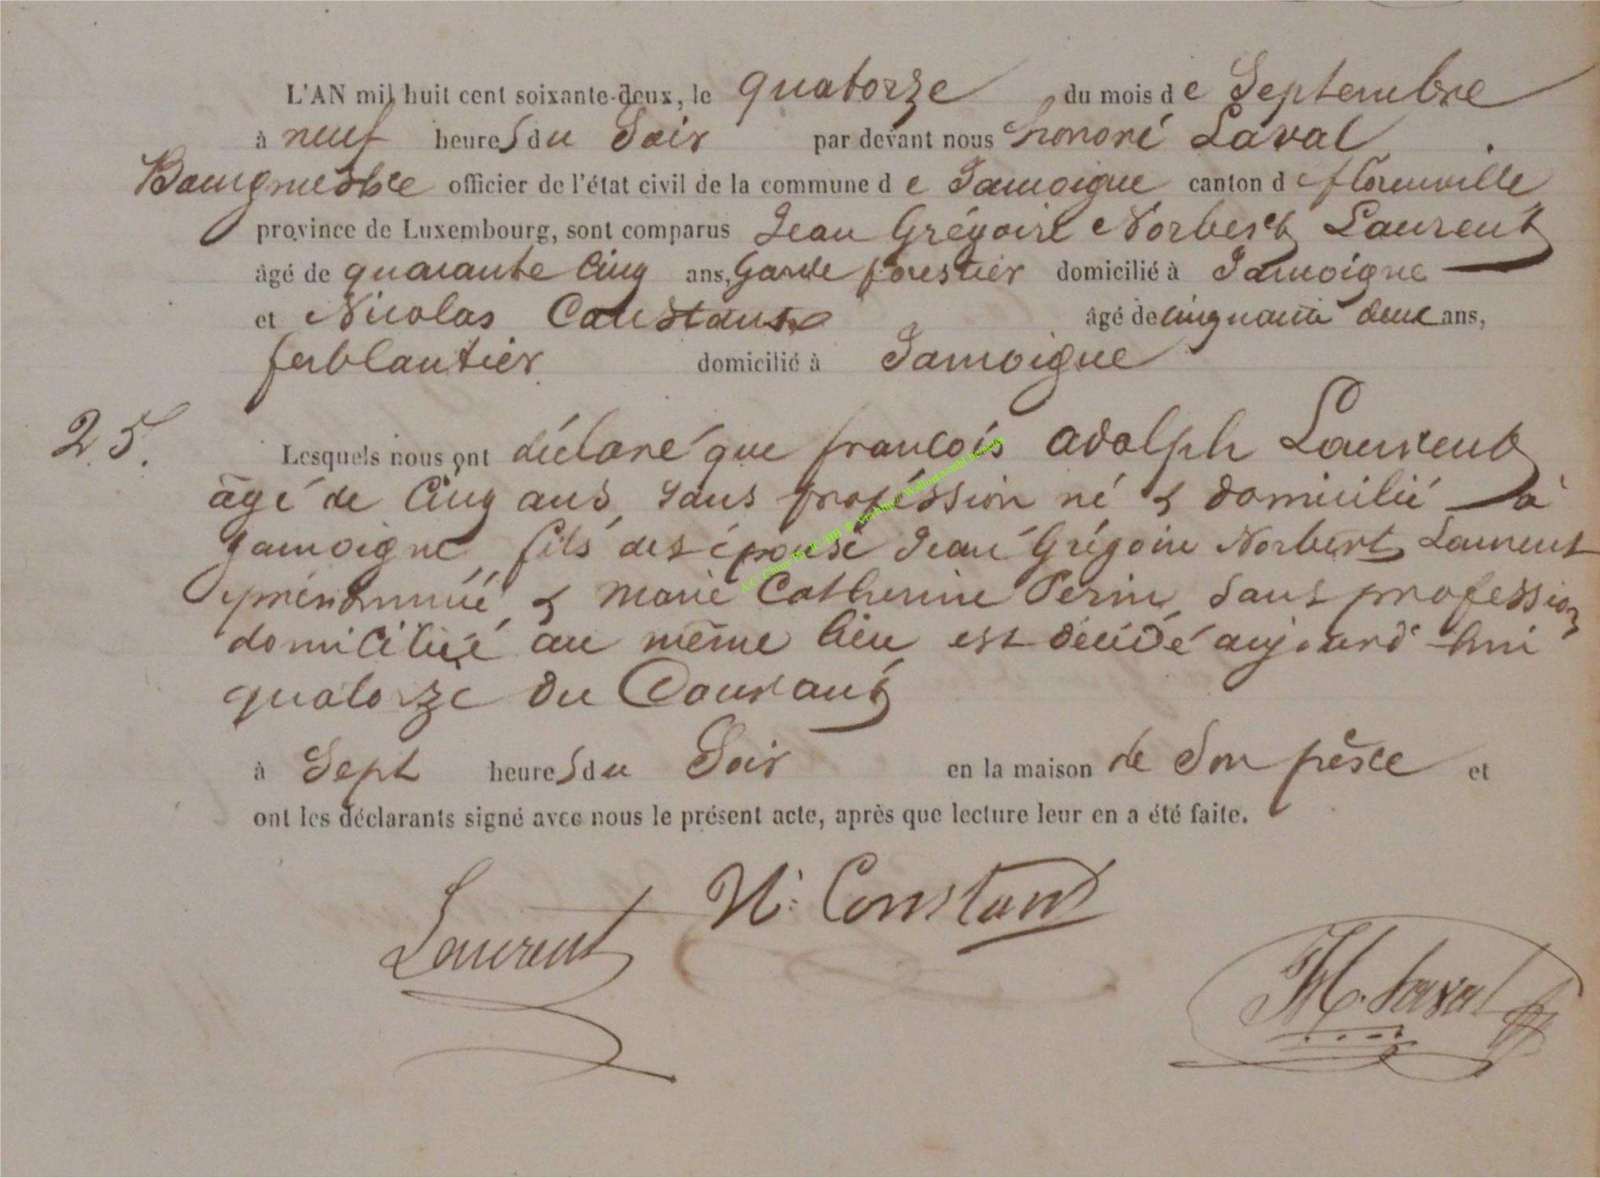 L'AN mil huit cent soixante-deux, le quatorze du mois de Septembre
à neuf heures du Soir par devant nous honoré Laval
Bourgmestre officier de l'état civil de la commune de Jamoigne canton de florenville
province de Luxembourg, sont comparus Jean Grégoire Norbert Laurent
âgé de quarante Cinq ans, Garde forestier domicilié à Jamoigne
et Nicolas Constant âgé de cinquante deux ans,
ferblantier domicilié à Jamoigne
25. Lesquels nous ont déclaré que francois adolph Laurent
âgé de Cinq ans, sans proféssion né & domicilié à
Jamoigne, fils des épousé Jean Grégoire Norbert Laurent
prénommé, & Marie Catherine Perin, sans profession
domiciliée au même lieu est décédé aujourd'hui
quatorze du Courant
à Sept heures du Soir en la maison de Son père et
ont les déclarants signé avec nous le présent acte, après que lecture leur en a été faite.
N: Constant
Laurent
H. Laval